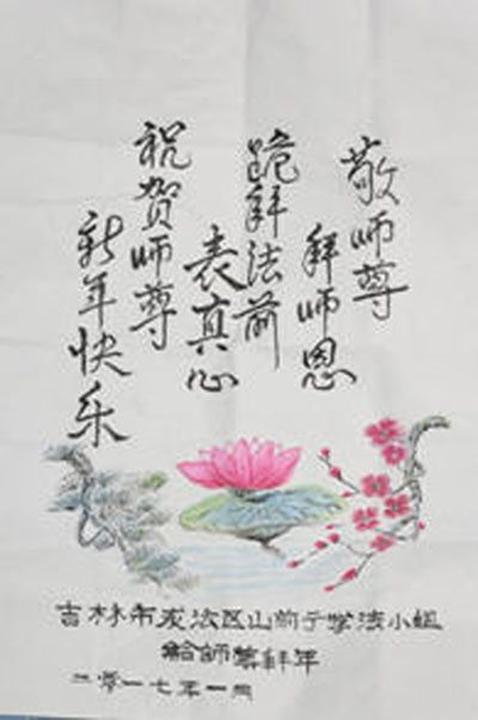 敬师尊
拜师恩
跪拜法前
表真心
祝贺师尊
新年快乐
吉林市炭法区山前子学法小组
給師尊拜年
二零一七年一月